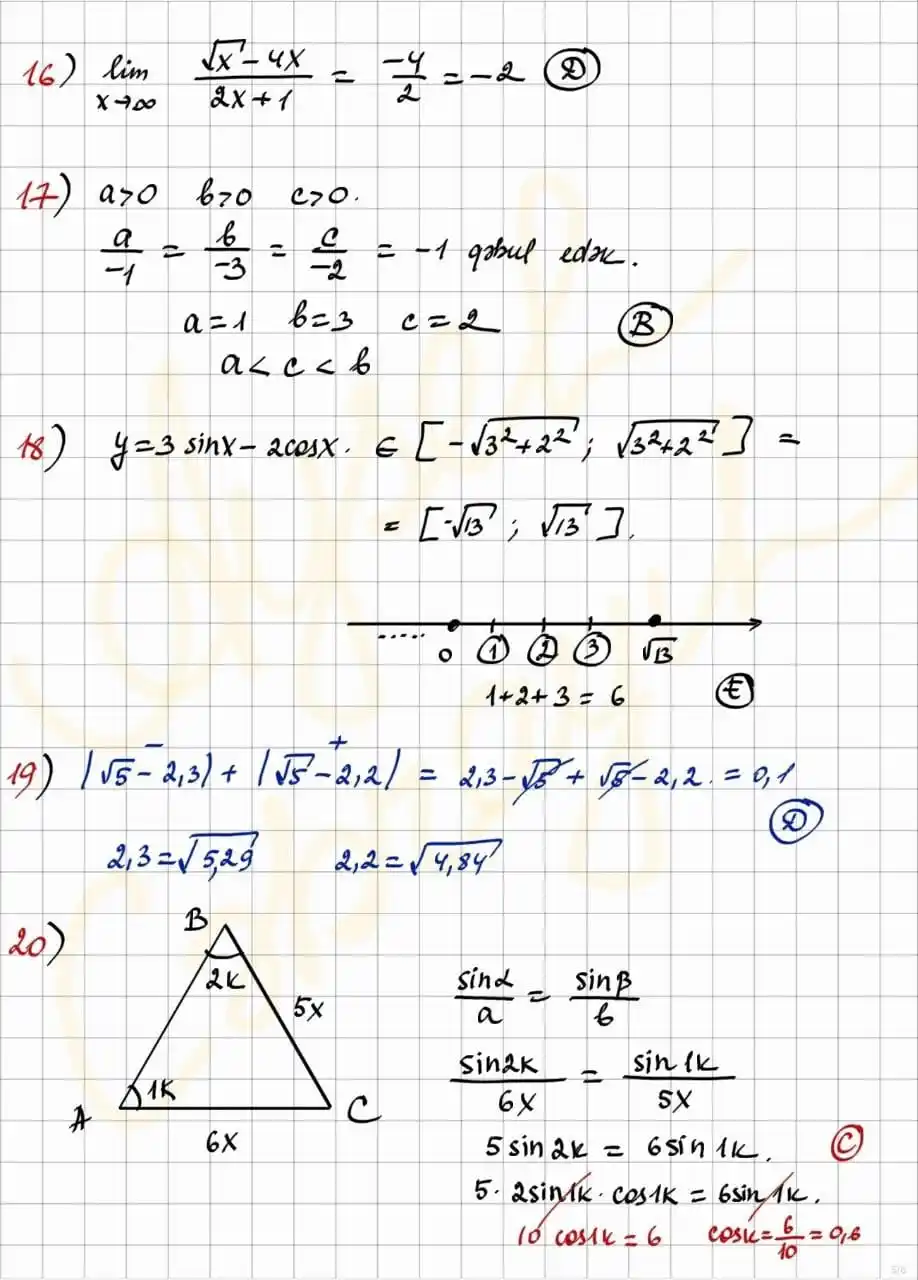 16) lim x→∞ (√x - 4x)/(2x+1) = -4/2 = -2 (D)
17) a>0 b>0 c>0.
a/-1 = b/-3 = c/-2 = -1 qəbul edək.
a=1 b=3 c=2 (B)
a< c < b
18) y=3 sinx - 2cosx. ∈ [-√(3²+2²); √(3²+2²)] =
= [-√13; √13].
.....
0 ① ② ③ √13
1+2+3 = 6 (E)
- +
19) |√5 - 2,3| + |√5 - 2,2| = 2,3-√5 + √5 - 2,2. = 0,1
(D)
2,3=√5,29 2,2=√4,84
20)
B
2k
5x
1k
A C
6x
sinα/a = sinβ/b
sin2k/6x = sin1k/5x
5 sin2k = 6sin1k. (C)
5· 2sin1k· cos1k = 6sin1k.
10 cos1k = 6 cosk= 6/10 = 0,6
5/6